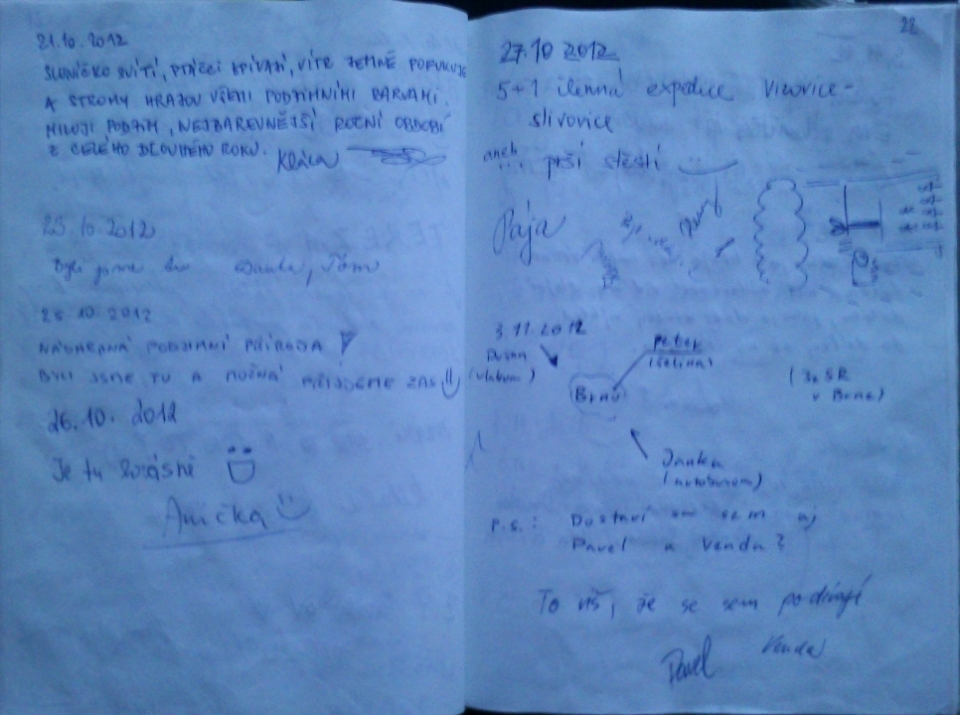 21.10.2012
SLUNÍČKO SVÍTÍ, PTÁČCI ZPÍVAJÍ, VÍTR JEMNĚ POFUKUJE
A STROMY HRAJOU VŠEMI PODZIMNÍMI BARVAMI.
MILUJI PODZIM, NEJBAREVNĚJŠÍ ROČNÍ OBDOBÍ
Z CELÉHO DLOUHÉHO ROKU.
Klára
25.10.2012
Byli jsme tu Danka, Tom
25.10.2012
NÁDHERNÁ PODZIMNÍ PŘÍRODA
BYLI JSME TU A MOŽNÁ PŘIJDEME ZAS
26.10.2012
Je tu krásně
Anička
22
27.10 2012
5+1 členná expedice Vizovice-
slivovice
aneb
... prší štěstí
Pája
3.11.2012
Dušan
(vlakom)
Peter
Brno
(Zo SR
v Brne)
Janka
(autobusom)
P.S.: Dostaví sa sem aj
Pavel a Venda?
To víš, že se sem podívají
Pavel
Venda